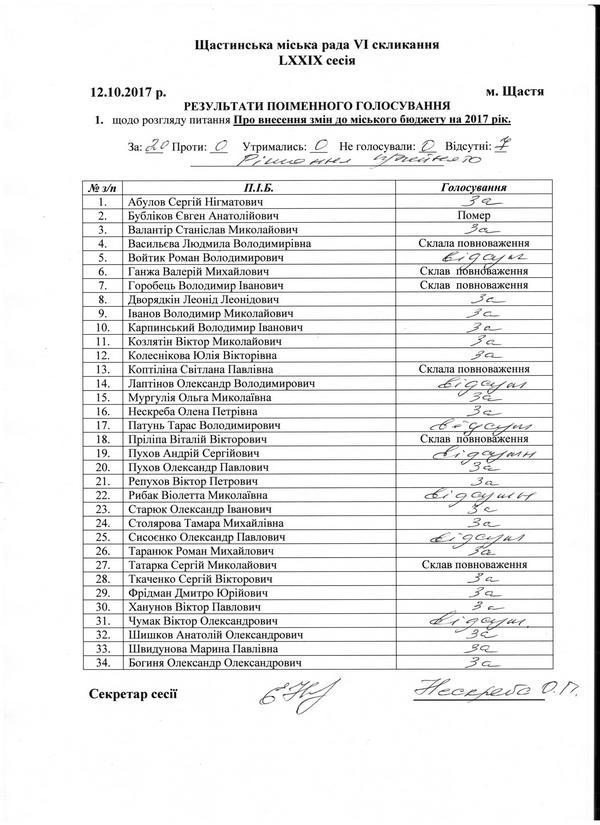 Щастинська міська рада VI скликання
LXXIX сесія
12.10.2017 р. м. Щастя
РЕЗУЛЬТАТИ ПОІМЕННОГО ГОЛОСУВАННЯ
1. щодо розгляду питання Про внесення змін до міського бюджету на 2017 рік.
За: 20 Проти: 0 Утримались: 0 Не голосували: 0 Відсутні: 7
Рішення прийнято
№ з/п П.І.Б. Голосування
1. Абулов Сергій Нігматович За
2. Бубліков Євген Анатолійович Помер
3. Валантір Станіслав Миколайович За
4. Васильєва Людмила Володимирівна Склала повноваження
5. Войтик Роман Володимирович відсутн
6. Ганжа Валерій Михайлович Склав повноваження
7. Горобець Володимир Іванович Склав повноваження
8. Дворядкін Леонід Леонідович За
9. Іванов Володимир Миколайович За
10. Карпинський Володимир Іванович За
11. Козлятін Віктор Миколайович За
12. Колеснікова Юлія Вікторівна За
13. Коптіліна Світлана Павлівна Склала повноваження
14. Лаптінов Олександр Володимирович відсутн
15. Мургулія Ольга Миколаївна За
16. Нескреба Олена Петрівна За
17. Патунь Тарас Володимирович відсутн
18. Пріліпа Віталій Вікторович Склав повноваження
19. Пухов Андрій Сергійович відсутн
20. Пухов Олександр Павлович За
21. Репухов Віктор Петрович За
22. Рибак Віолетта Миколаївна відсутн
23. Старюк Олександр Іванович За
24. Столярова Тамара Михайлівна За
25. Сисоєнко Олександр Павлович відсутн
26. Таранюк Роман Михайлович За
27. Татарка Сергій Миколайович Склав повноваження
28. Ткаченко Сергій Вікторович За
29. Фрідман Дмитро Юрійович За
30. Ханунов Віктор Павлович За
31. Чумак Віктор Олександрович відсутн.
32. Шишков Анатолій Олександрович За
33. Швидунова Марина Павлівна За
34. Богиня Олександр Олександрович За
Секретар сесії Нескреба О.П.